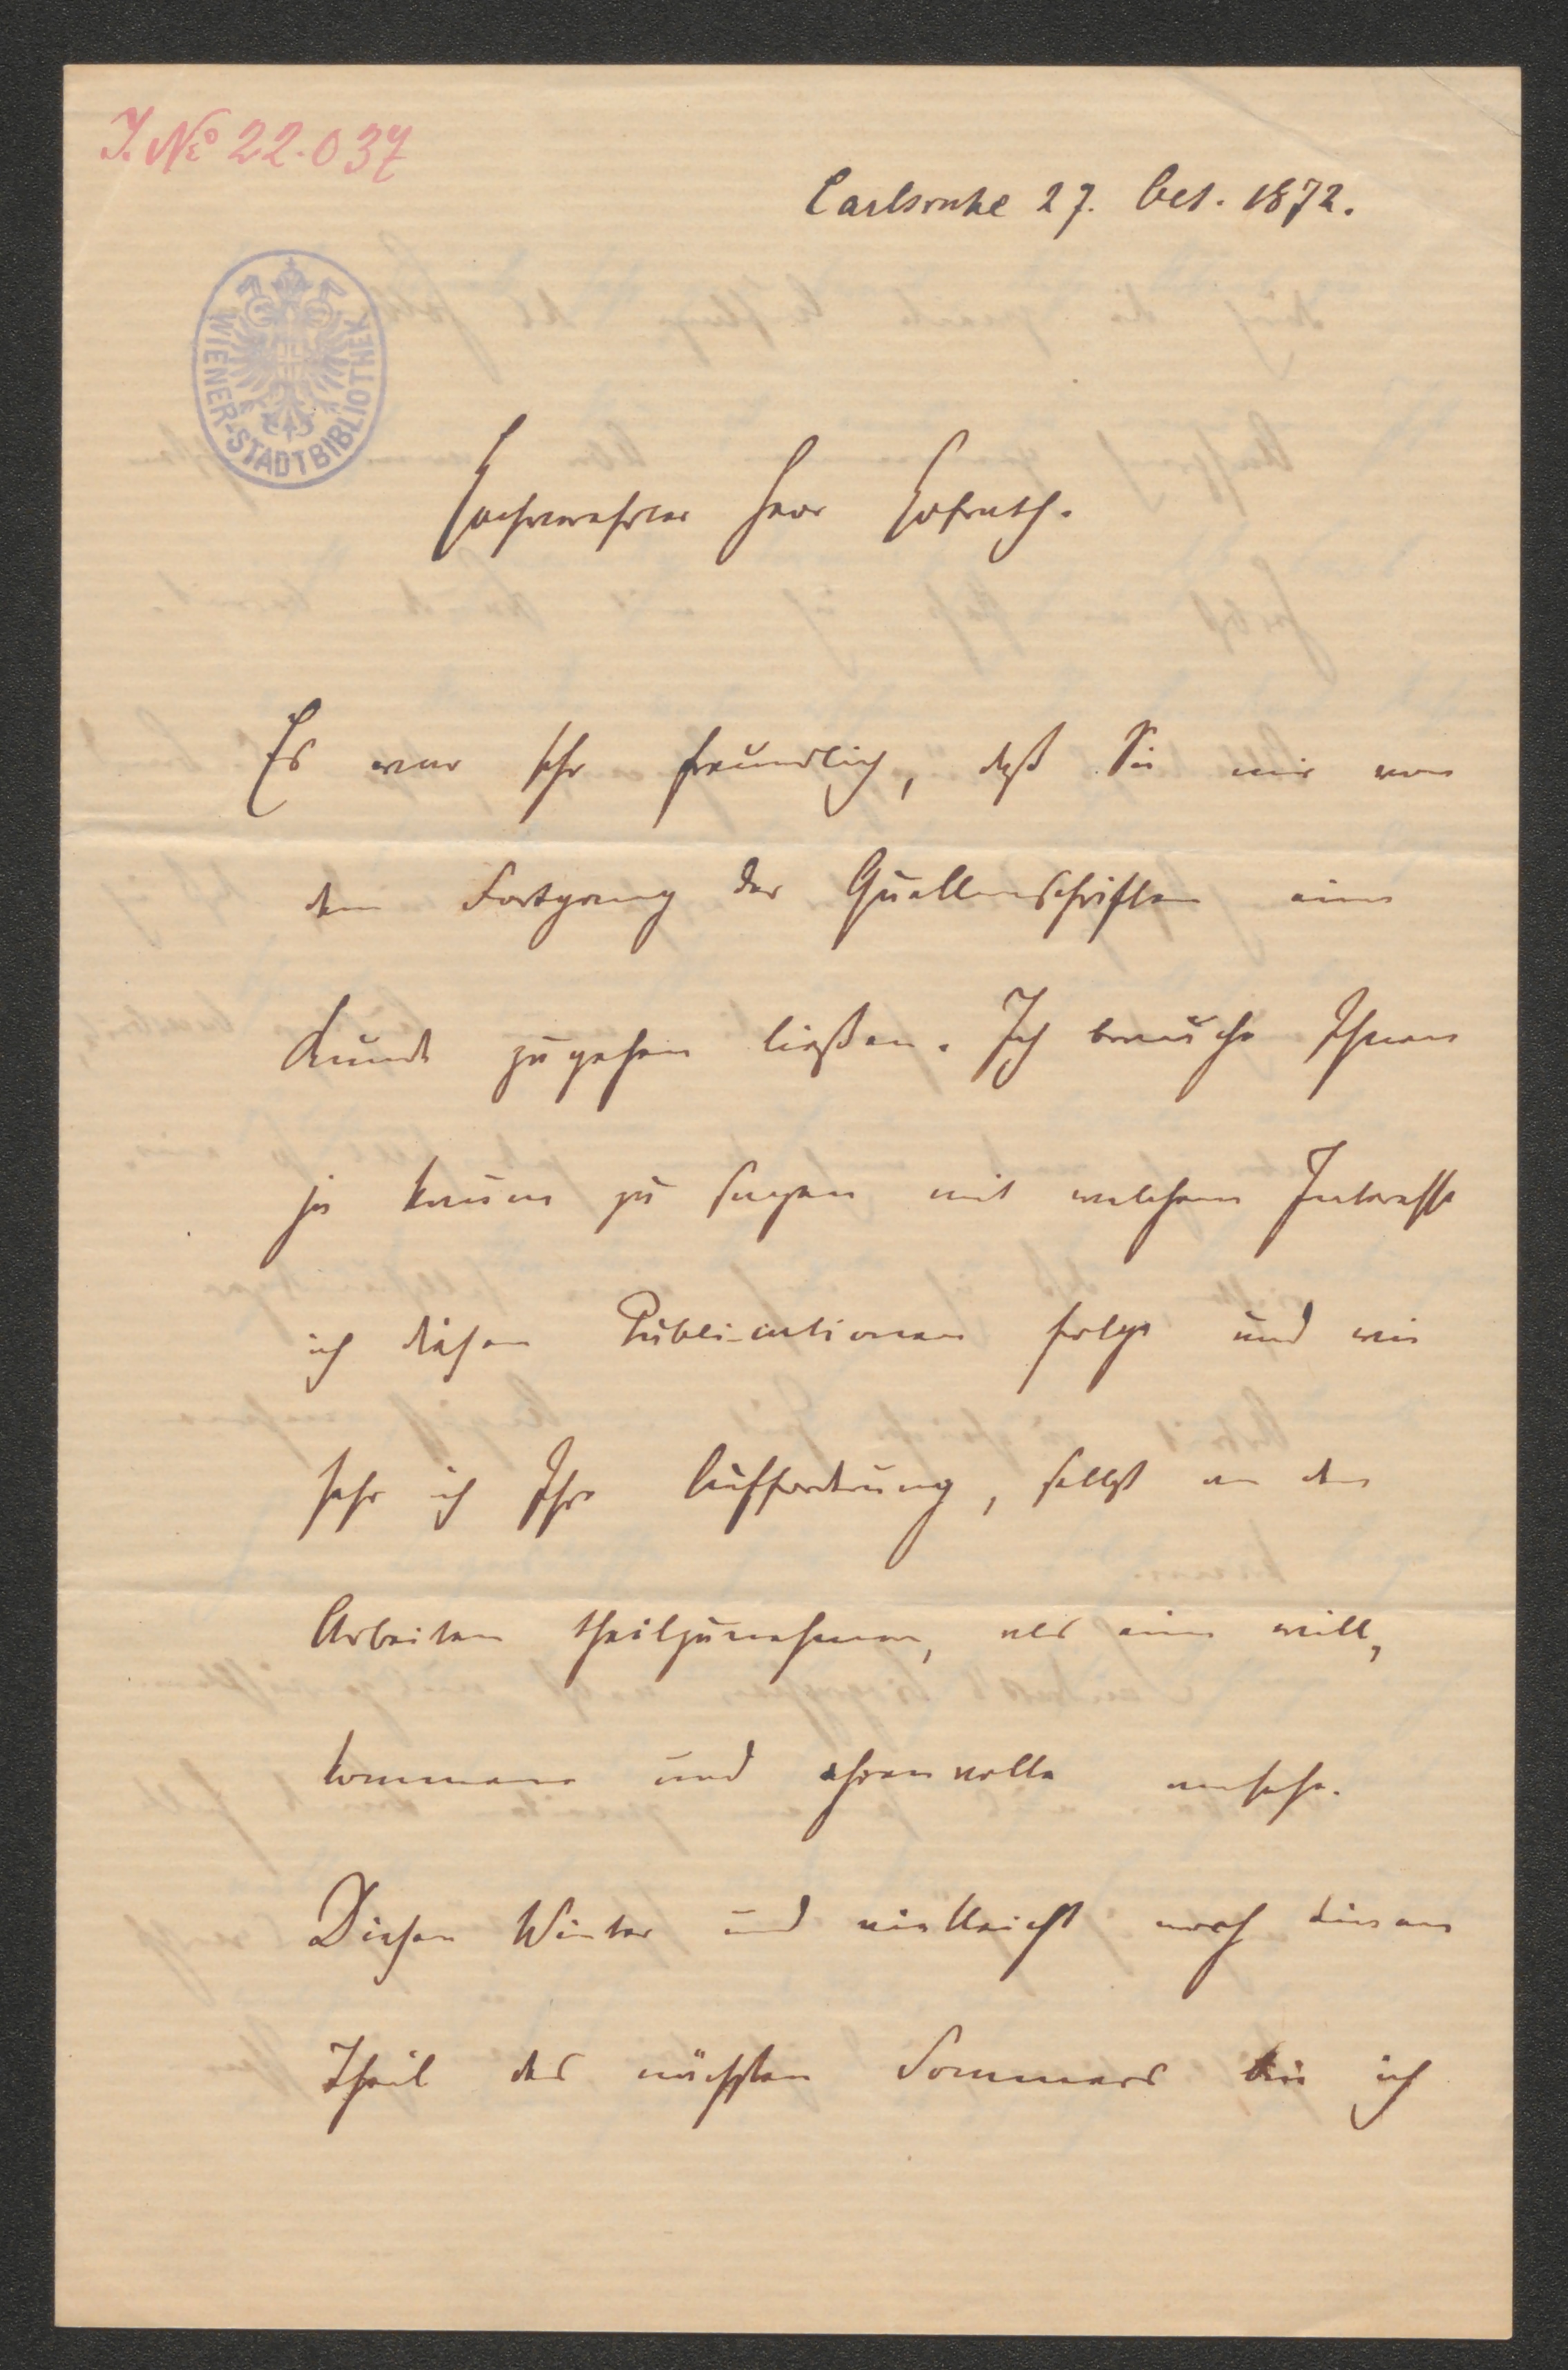 J. No 22.037
Carlsruhe 27. Oct. 1872.
WIENER-STADTBIBLIOTHEK
Hochverehrter Herr Hofrath.
Es war sehr freundlich, daß Sie mir von
dem Fortgang der Quellenschriften eine
Kunde zugehen ließen. Ich brauche Ihnen
ja kaum zu sagen mit welchem Interesse
ich diesen Publicationen folge und wie
sehr ich Ihre Aufforderung, selbst an den
Arbeiten theilzunehmen, als eine will,
kommene und ehrenvolle ansehe.
Diesen Winter und vielleicht noch einen
Theil des nächsten Sommers bin ich